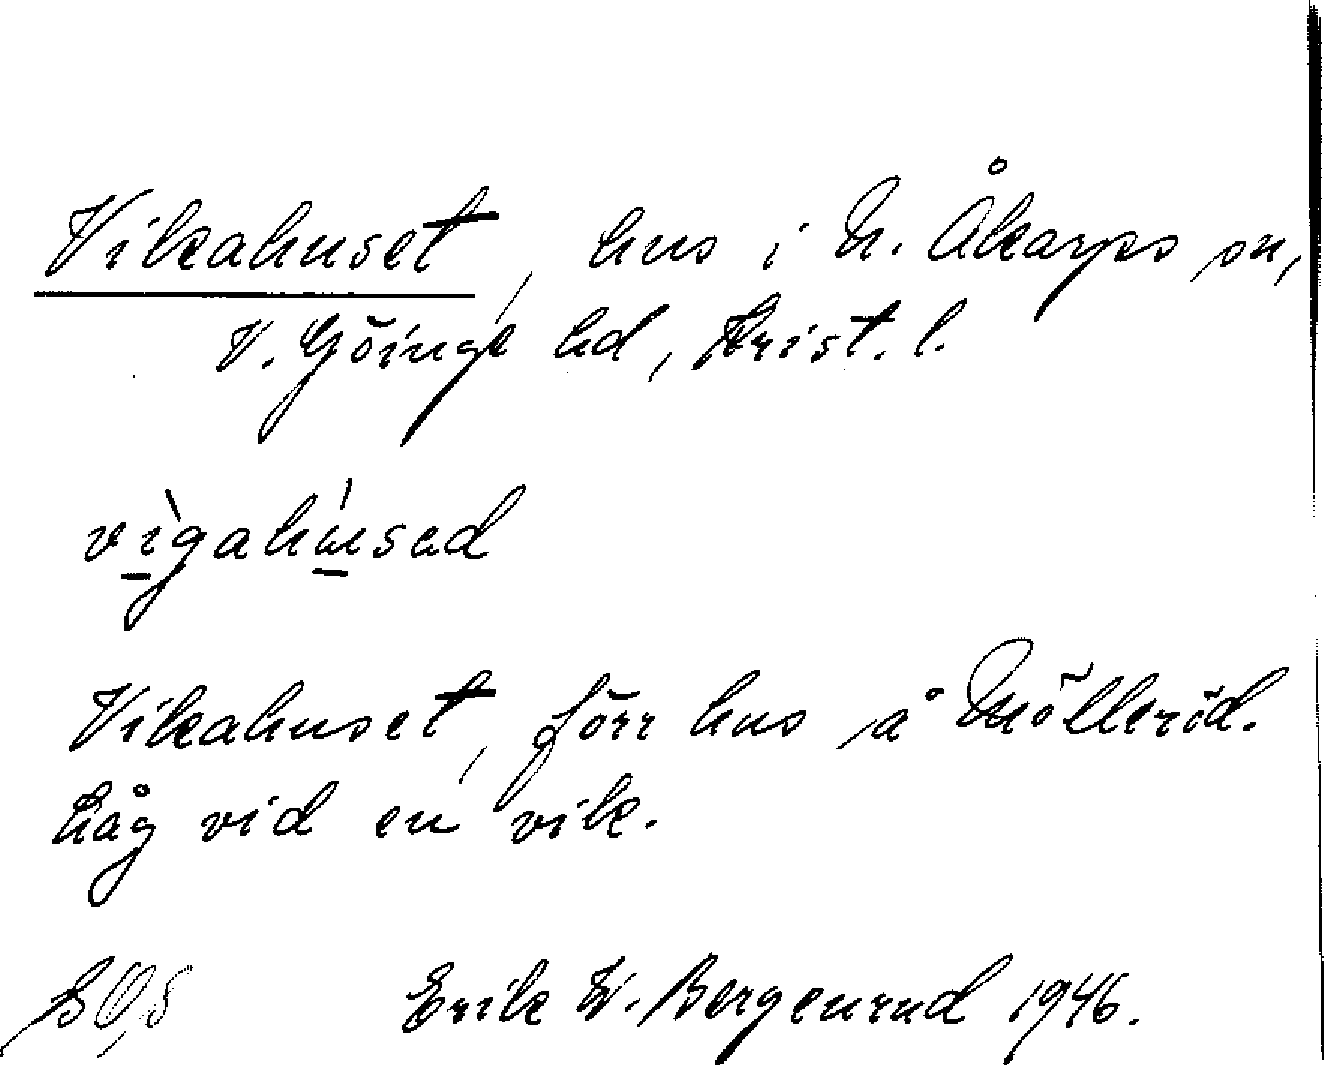 Vikahuset, hus i N. Åkarps sn,
V. Göinge hd, Krist. l.
vìgahúsed
Vikahuset, förr hus å Mölleröd.
Låg vid en vik.
Erik W. Bergenrud 1946.